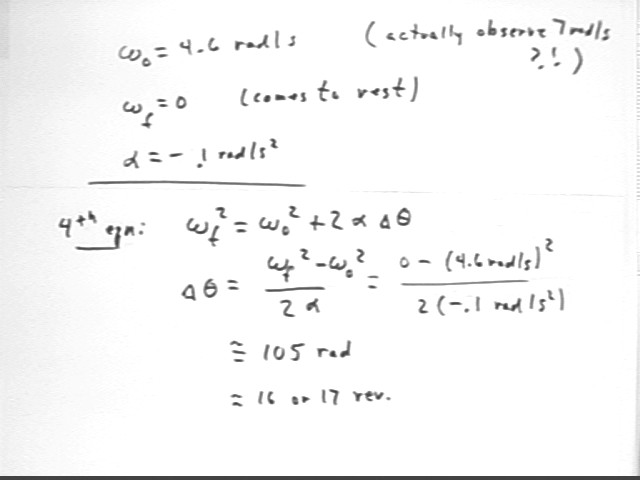 ω₀ = 4.6 rad/s (actually observe 7 rad/s ?!)
ω_f = 0 (comes to rest)
α = -.1 rad/s²
4th eqn: ω_f² = ω₀² + 2 α Δθ
Δθ = (ω_f² - ω₀²) / (2 α) = (0 - (4.6 rad/s)²) / (2(-.1 rad/s²))
≅ 105 rad
≈ 16 or 17 rev.